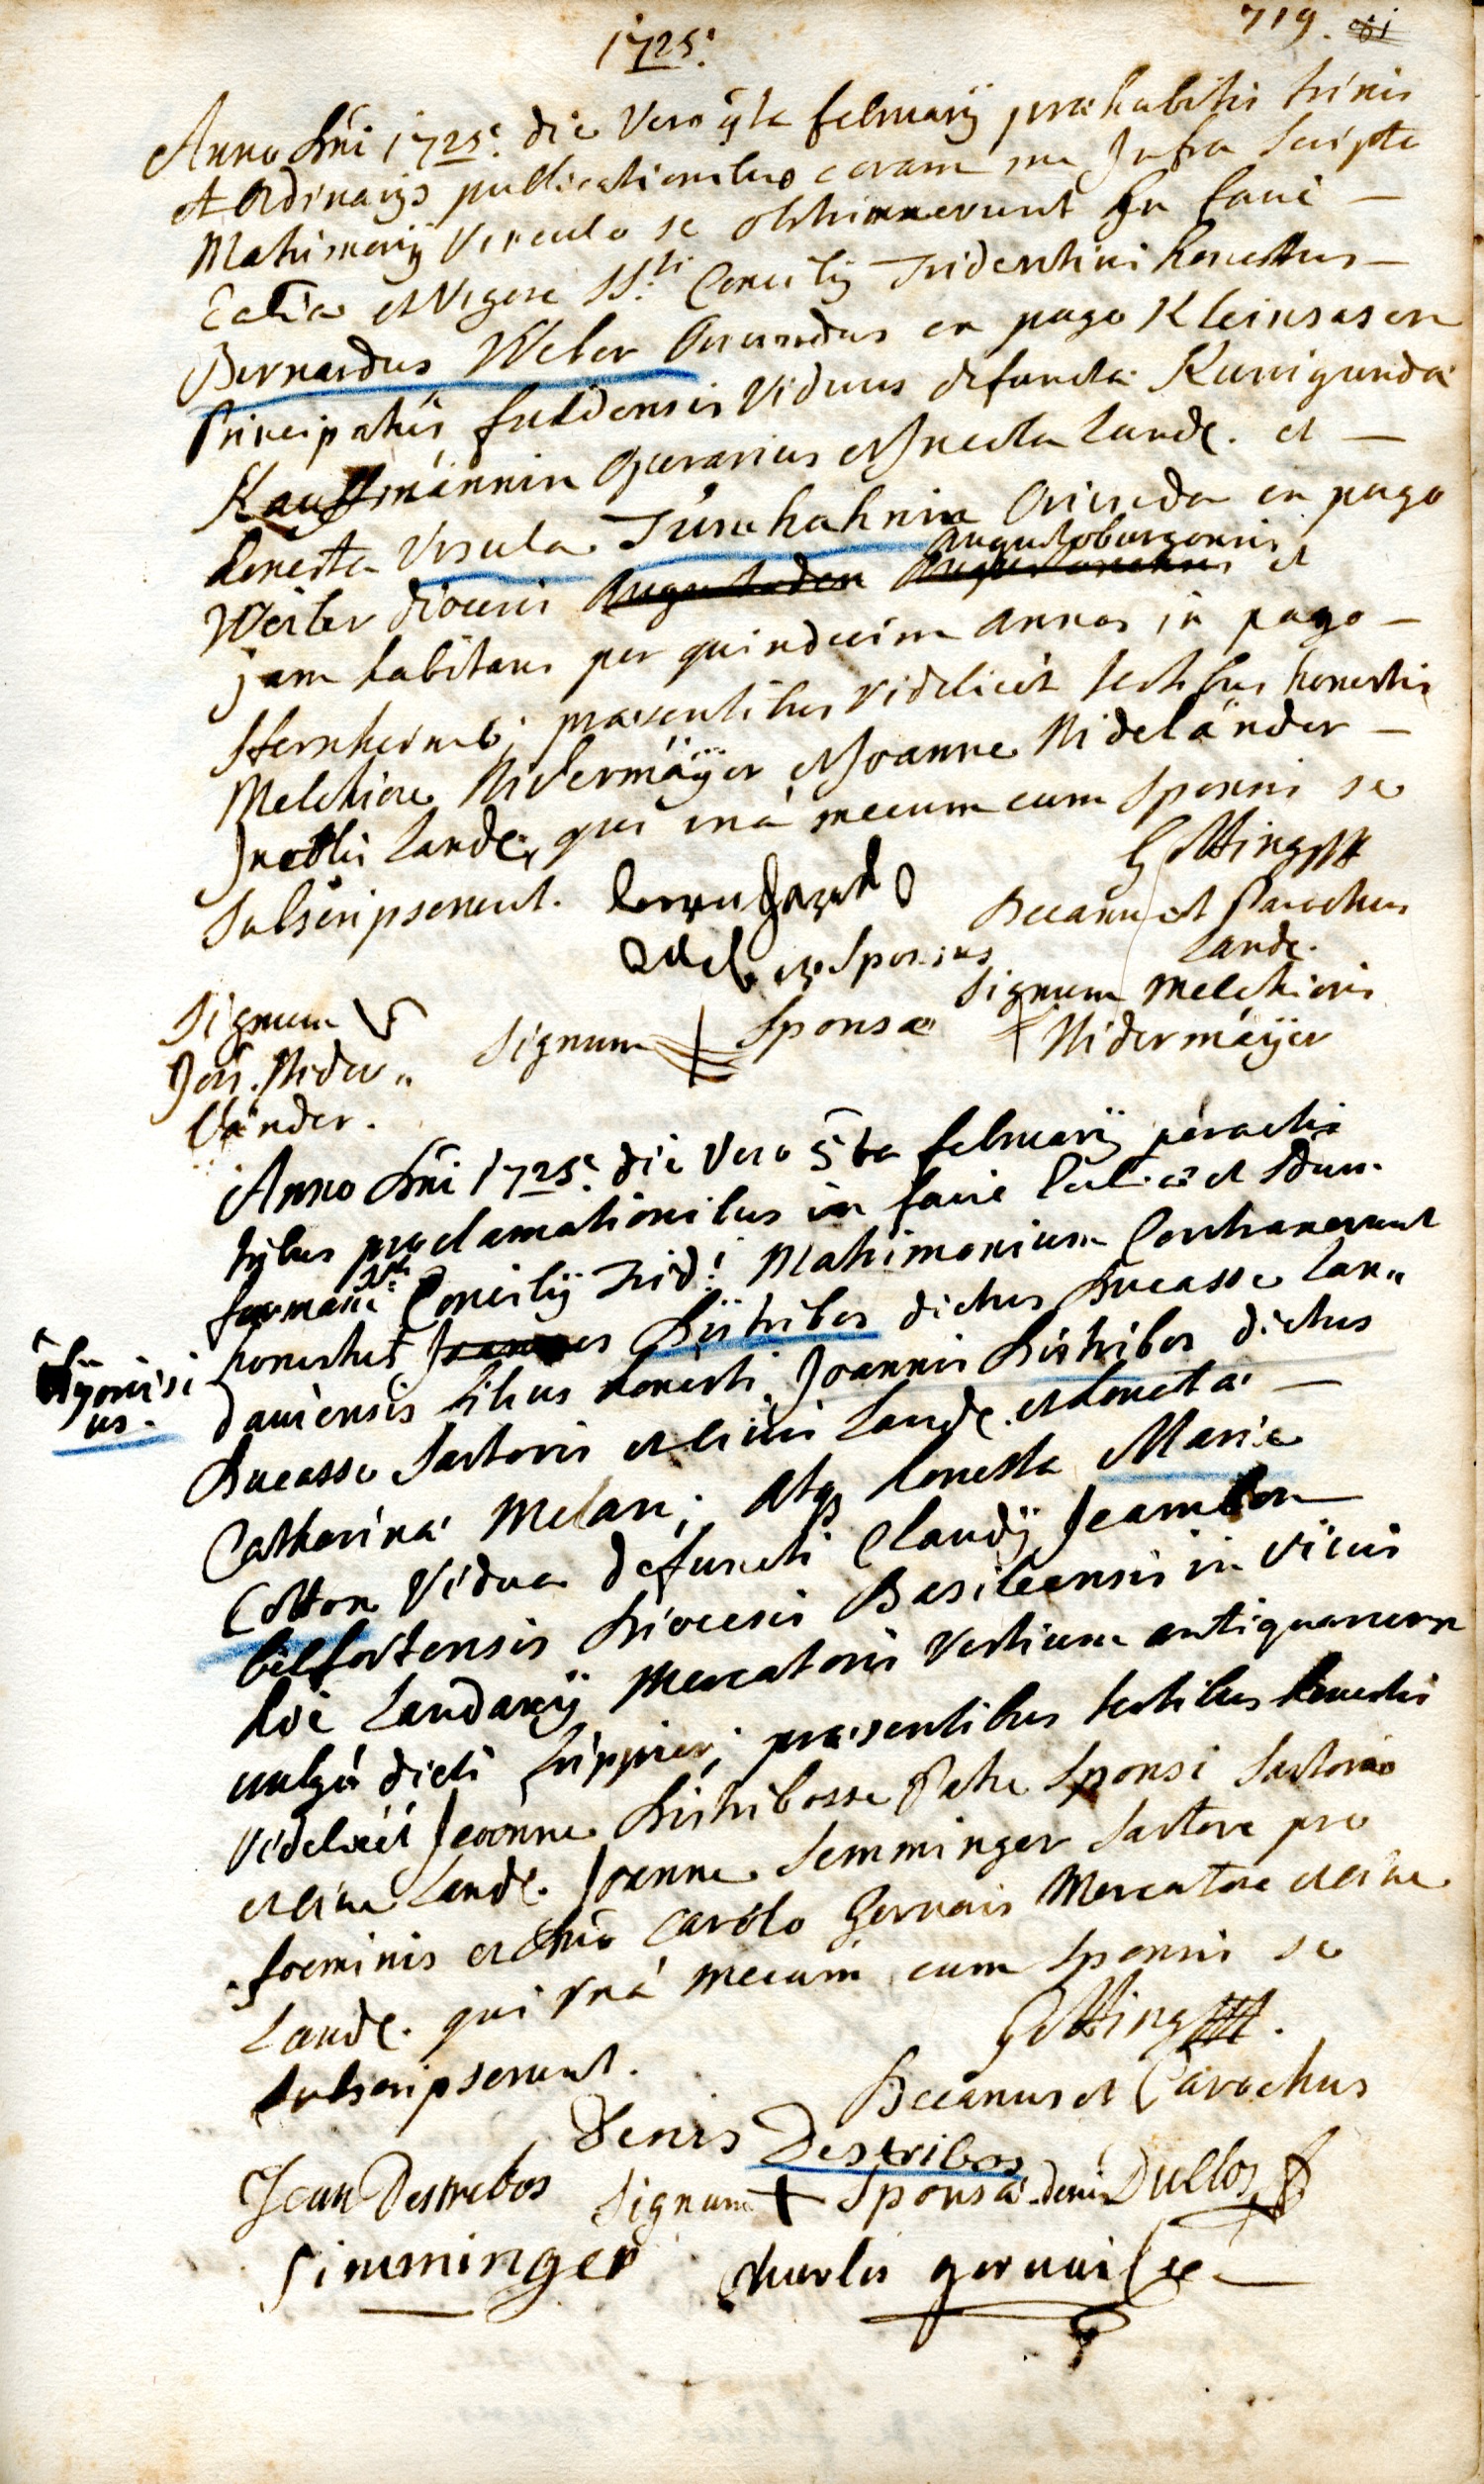 1725.
719.
Anno Dni 1725. die vero 4ta february præhabitis trinis
et ordinarys publicationibus coram me Infra scripto
Matrimony vinculo se obstrinxerunt In facie
Ecclia et vigore SS.ti Concily Tridentini honestus
Bernardus Weber Oriundus ex pago Kleinsasen
Principatus fuldensis viduus defuncta Kunigunda
Kauffmännin operarius et Incola Landę. et
honesta Ursula Turnhahnin Oriunda ex pago
Weiler diocesis Augustoburgensis et
jam habitans per quindecim annos in pago
Hernheimb, præsentibus videlicet testibus honestis
Melchiore Nidermäyer et Joanne Nideländer
Incolis Landę, qui unà mecum cum Sponsis se
Subscripserunt.
Götting
Decanus et Parochus
Landę.
Weber Sponsus
Signum
Jois. Nider„
länder.
Signum Sponsæ
Signum Melchioris
Nidermäyer
Anno Dni 1725. die vero 5ta february peractis
tribus proclamationibus in facie Eccliæ et Sdum.
formam SSti Concily Trid.i Matrimonium Contraxerunt
honestus Distribos dictus Ducasse Lan„
Dyonisi
us.
daviensis filius honesti Joannis Distribos dictus
Ducasse Sartoris et civis Landę. et honesta
Catharina Melan; atq honesta Maria
Cotton vidua defuncti Claudy Jeambon
belfortensis Diocesis Basileensis in vicis
hoc Landavy Mercatoris vestium antiquarum
vulgò dicti frippier; præsentibus testibus honestis
videlicet Joanne Distribosse Patre Sponsi Sartore
et cive Landę. Joanne Semminger Sartore pro
foeminis et Dno Carolo Gervais Mercatore et cive
Landę. qui Unà mecum cum Sponsis se
Subscripserunt.
Götting
Decanus et Parochus
Denis Destribos
Jean Destrebos
Signum Sponsæ
Denis Dullos
Simminger
Charles gervaise